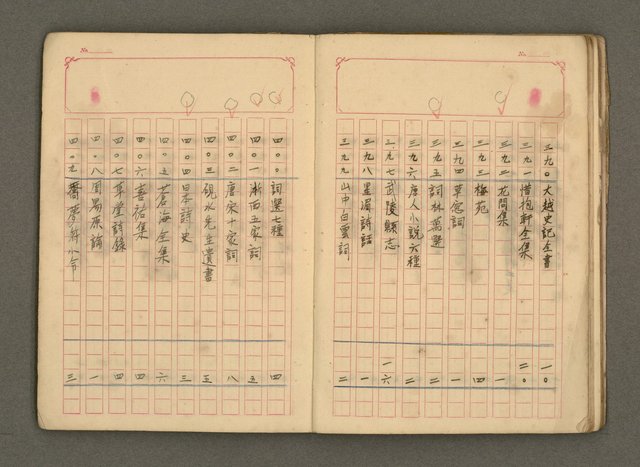 No.
三九〇 大越史記全書 一〇
三九一 惜抱軒全集 二〇
三九二 龙門集 一
三九三 梅苑 四
三九四 草窓詞 一
三九五 詞林萬選 二
三九六 唐人小說六種 二
三九七 武陵縣志 一六
三九八 星湄詩話 一
三九九 山中白雲詞 二
No.
四〇〇 詞選七種 四
四〇一 浙西五家詞 五
四〇二 唐宋十家詞 八
四〇三 硯水先生遺書 五
四〇四 日本詩史 三
四〇五 蒼海全集 六
四〇六 嘉祐集 四
四〇七 草堂詩錄 四
四〇八 周易原論 一
四〇九 夢 小令 三